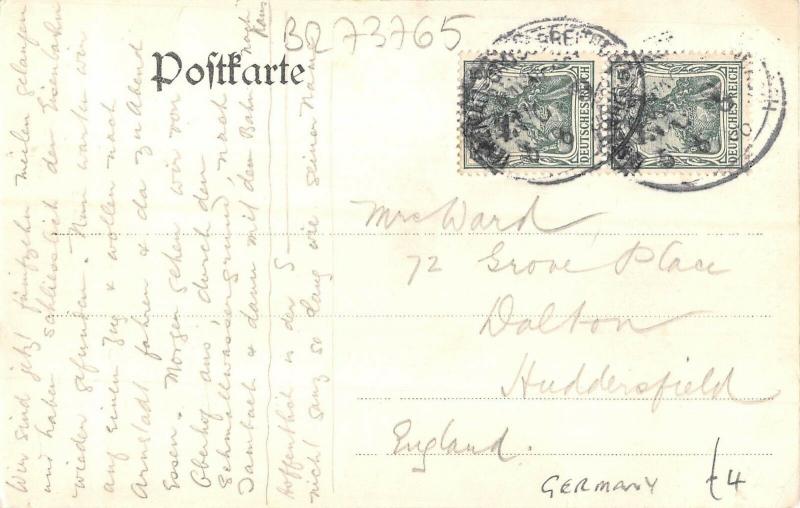 BQ 73765
Postkarte
DEUTSCHES REICH
DEUTSCHES REICH
Mrs Ward
72 Grove Place
Dalton
Huddersfield
England.
GERMANY
£4
Wir sind jetzt fünfzehn meilen gelangen
und haben schliesslich der Eisenbahn
wieder gefunden. Nun warten wir
auf einen Zug & wollen nach
Arnstadt fahren & da zu Abend
Essen. Morgen gehen wir von
Oberhof aus, durch den
Schmalwassergrund nach
Tambach & dann mit dem Bahn nach
Haus
hoffentlich is der S—
nicht ganz so lang wie seiner Name